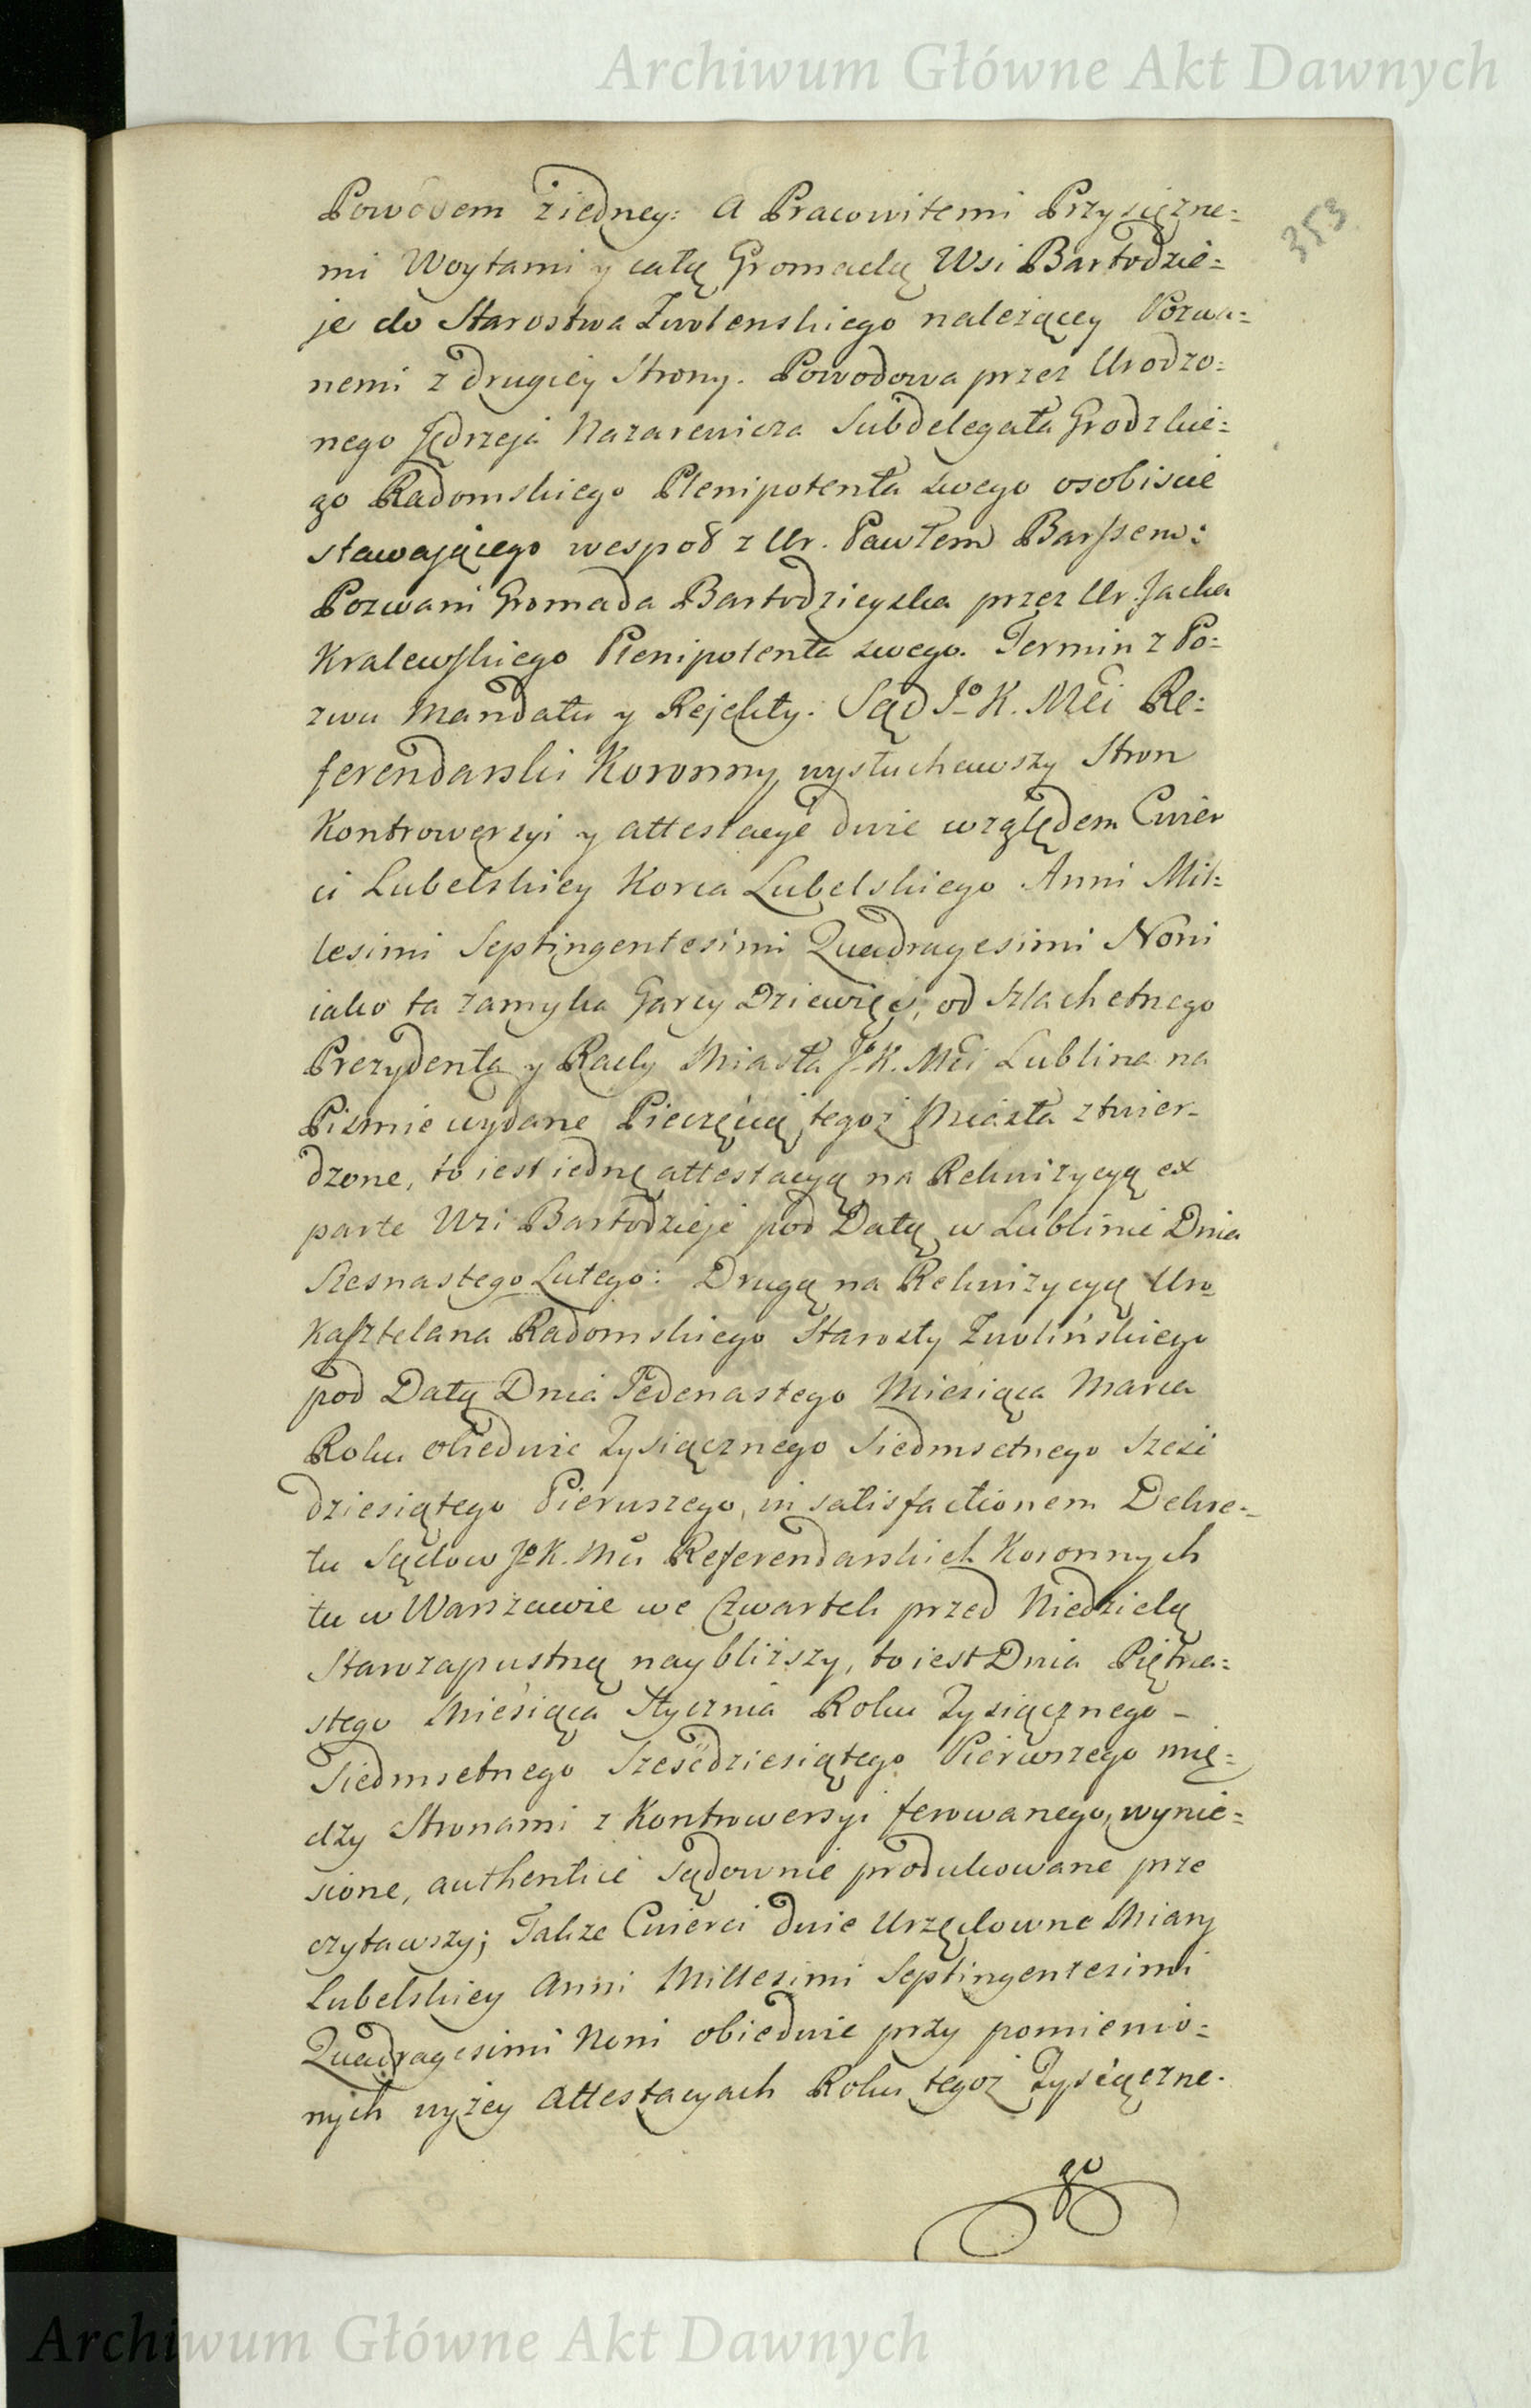 Archiwum Główne Akt Dawnych
353
Powodem ziedney: A Pracowitemi Przysiężne=
mi Woytami y całą Gromadą Wsi Bartodzie=
je do Starostwa Zwolenskiego należącey Pozwa=
nemi z drugiey Strony. Powodowa przez Urodzo=
nego Jędrzeja Nazarewicza Subdelegata Grodzkie=
go Radomskiego Plenipotenta swego osobiscie
stawającego wespoł z Ur. Pawłem Barssem:
Pozwani Gromada Bartodzieyska przez Ur. Jacka
Kralewskiego Plenipotenta swego. Termin z Po=
zwu Mandatu y Rejekty. Sąd Jo K. Mci Re=
ferendarski Koronny wysłuchawszy Stron
Kontrowersyi y attestacye dwie względem Cwier
ci Lubelskiey Korca Lubelskiego Anni Mil=
lesimi Septingentesimi Quadragesimi Noni
iako ta zamyka Garcy Dziewięć, od Szlachetnego
Prezydenta y Rady Miasta Jo K. Mci Lublina na
Pismie wydane Pieczęcią tegoż Miasta ztwier-
dzone, to iest iednę attestacyą na Rekwizycyą ex
parte Wsi Bartodzieje pod Datą w Lublinie Dnia
Szesnastego Lutego: Drugą na Rekwizycyą Uro
Kasztelana Radomskiego Starosty Zwolińskiego
pod Datą Dnia Jedenastego Miesiąca Marca
Roku obiedwie Tysiącznego Siedmsetnego Sześć
dziesiątego Pierwszego, in satisfactionem Dekre-
tu Sądow Jo K. Mci Referendarskich Koronnych
tu w Warszawie we Czwartek przed Niedzielą
Starozapustną naybliższy, to iest Dnia Piętna=
stego Miesiąca Stycznia Roku Tysiącznego -
Siedmsetnego Sześćdziesiątego Pierwszego mię=
dzy Stronami z Kontrowersyi ferowanego, wynie=
sione, authentice sądownie produkowane prze
czytawszy; Takze Cwierci dwie Urzędowne Miary
Lubelskiey Anni Millesimi Septingentesimi
Quadragesimi Noni obiedwie przy pomienio=
nych wyżey Attestacyach Roku tegoż Tysiączne-
go
Archiwum Główne Akt Dawnych